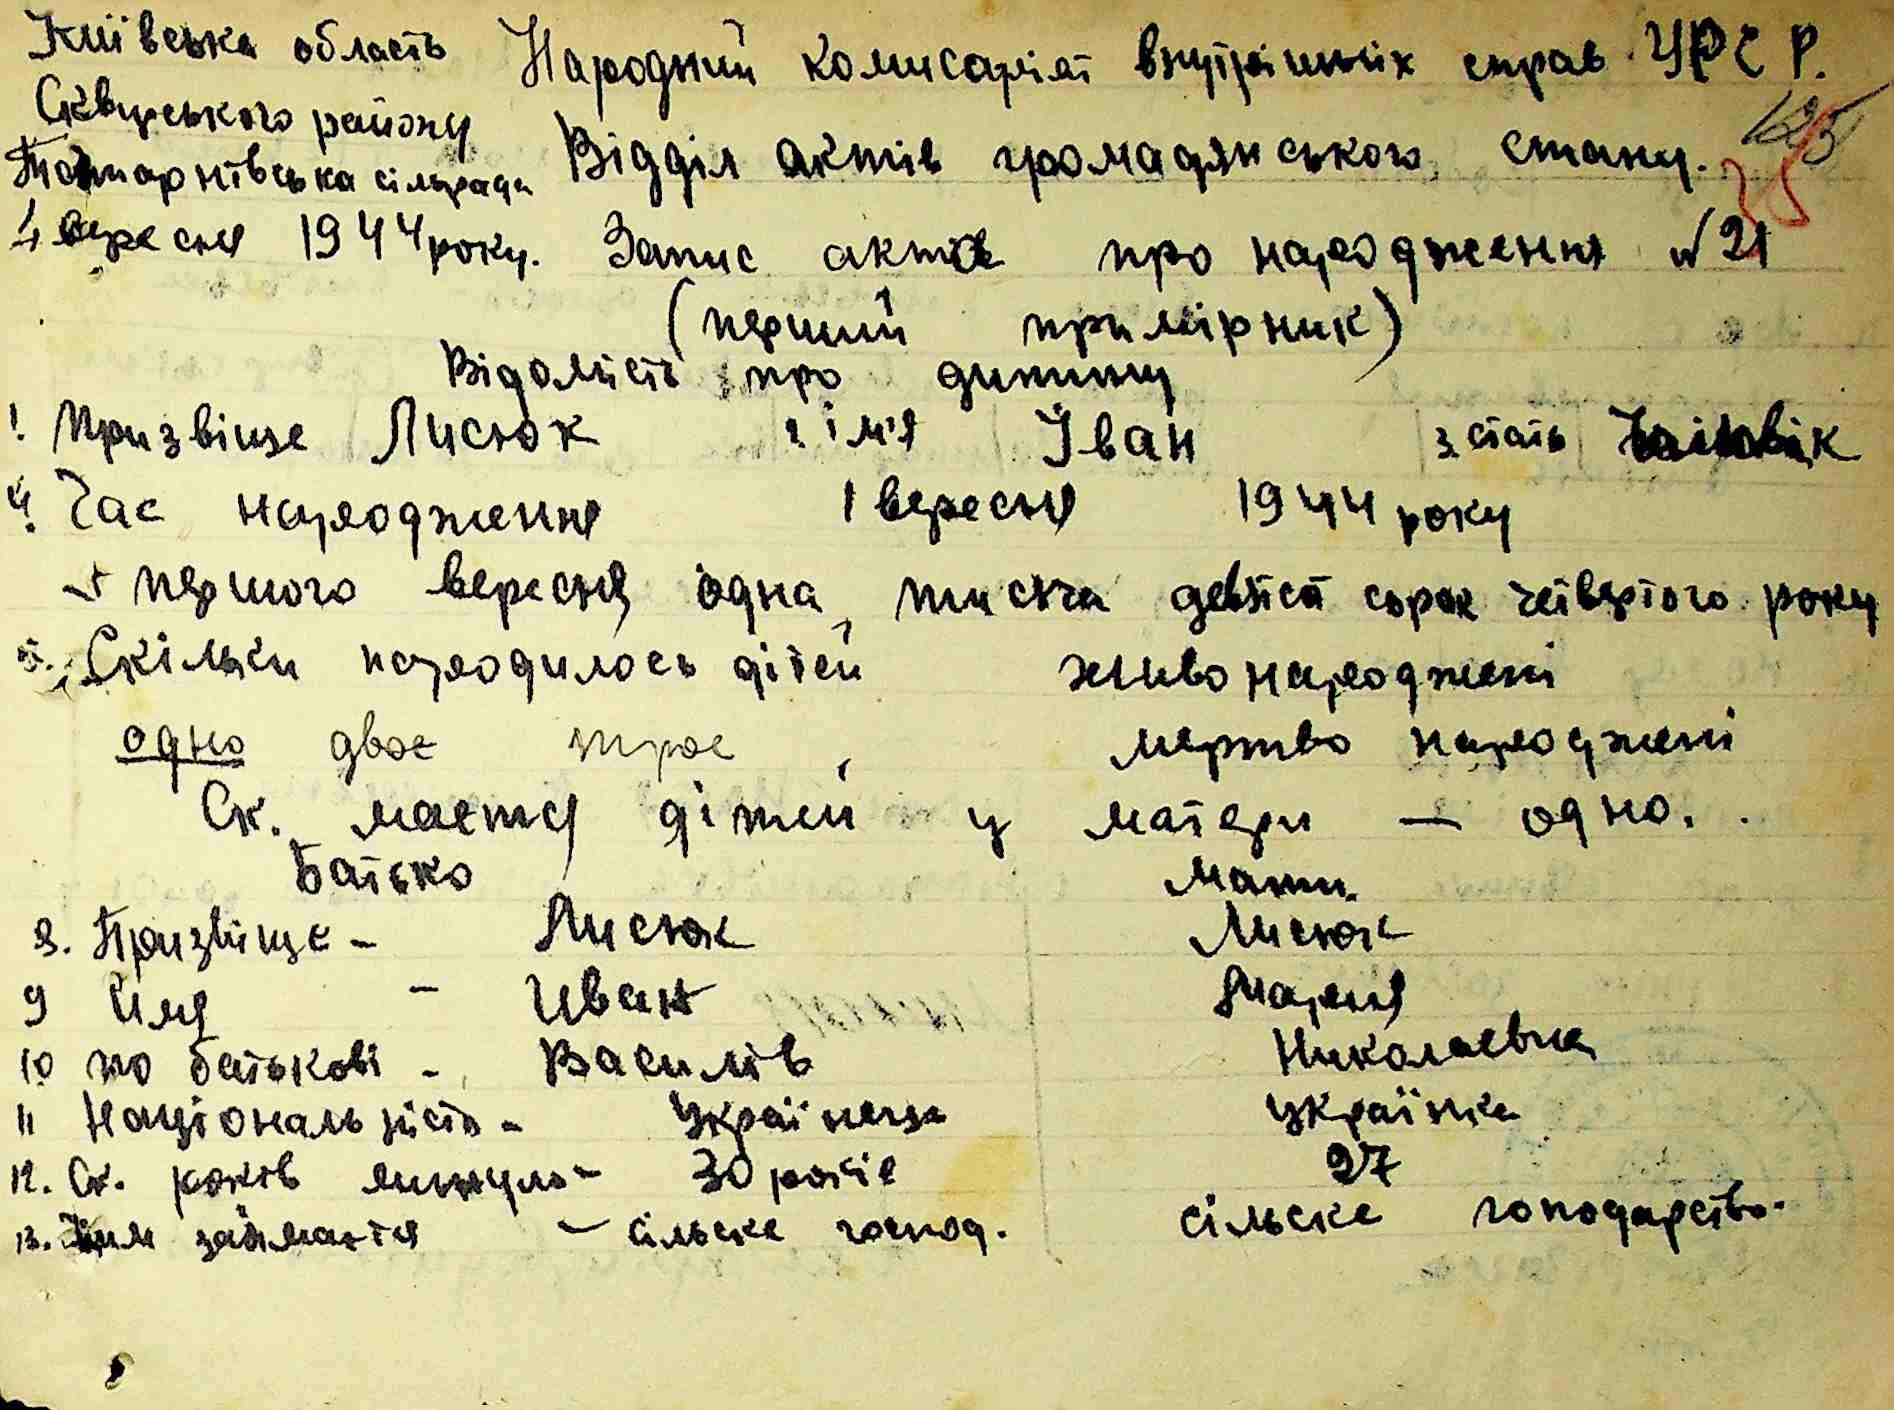 Київська область Народний комисаріят внутрішніх справ УРСР.
Сквирського району
125
Відділ актів громадянського стану.
сільрада
25
4 вересня 1944 року. Запис актів про народження № 21
(перший примірник)
Відомість про дитину
1. Призвіще Лисюк 2 ім'я Іван 3 стать Чоловік
4. Час народження 1 вересня 1944 року
першого вересня одна тисяча девятсот сорок четвертого року
5. Скільки народилось дітей живо народжені
одно двоє троє мертво народжені
Ск. маєтся дітей у матери — одно.
Батько Мати.
8. Призвіще – Лисюк Лисюк
9 Имя – Иван Мария
10 по батькові – Василів Николаевна
11 Національність – Українець українка
12. Ск. років минуло – 30 років 27
13. Чим займаются – сільске господ. сільске господарство.